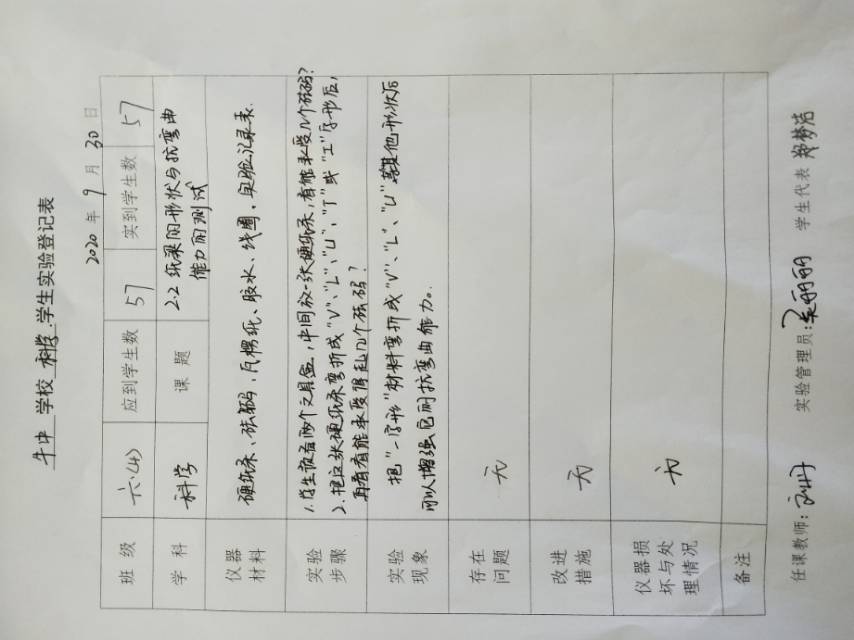 牛中 学校 科学 学生实验登记表
2020 年 9 月 30 日
班 级 六.(4) 应到学生数 57 实到学生数 57
学 科 科学 课 题 2.2 纸梁的形状与抗弯曲
能力的测试
仪器
材料
硬纸条、砝码、瓦楞纸、胶水、线圈、实验记录表.
实验
步骤
1.学生取看两个文具盒,中间放一张硬纸条,看能承受几个砝码?
2.把这张硬纸条弯折成"V"、"L"、"U"、"T"或"工"字形后,
再看看能承受得起几个砝码?
实验
现象
把"一字形"材料弯折成"V"、"L"、"U"或其他形状后
可以增强它耐抗弯曲能力。
存在
问题
无
改进
措施
无
仪器损
坏与处
理情况
无
备注
任课教师: 实验管理员:吴丽丽 学生代表 郑梦洁